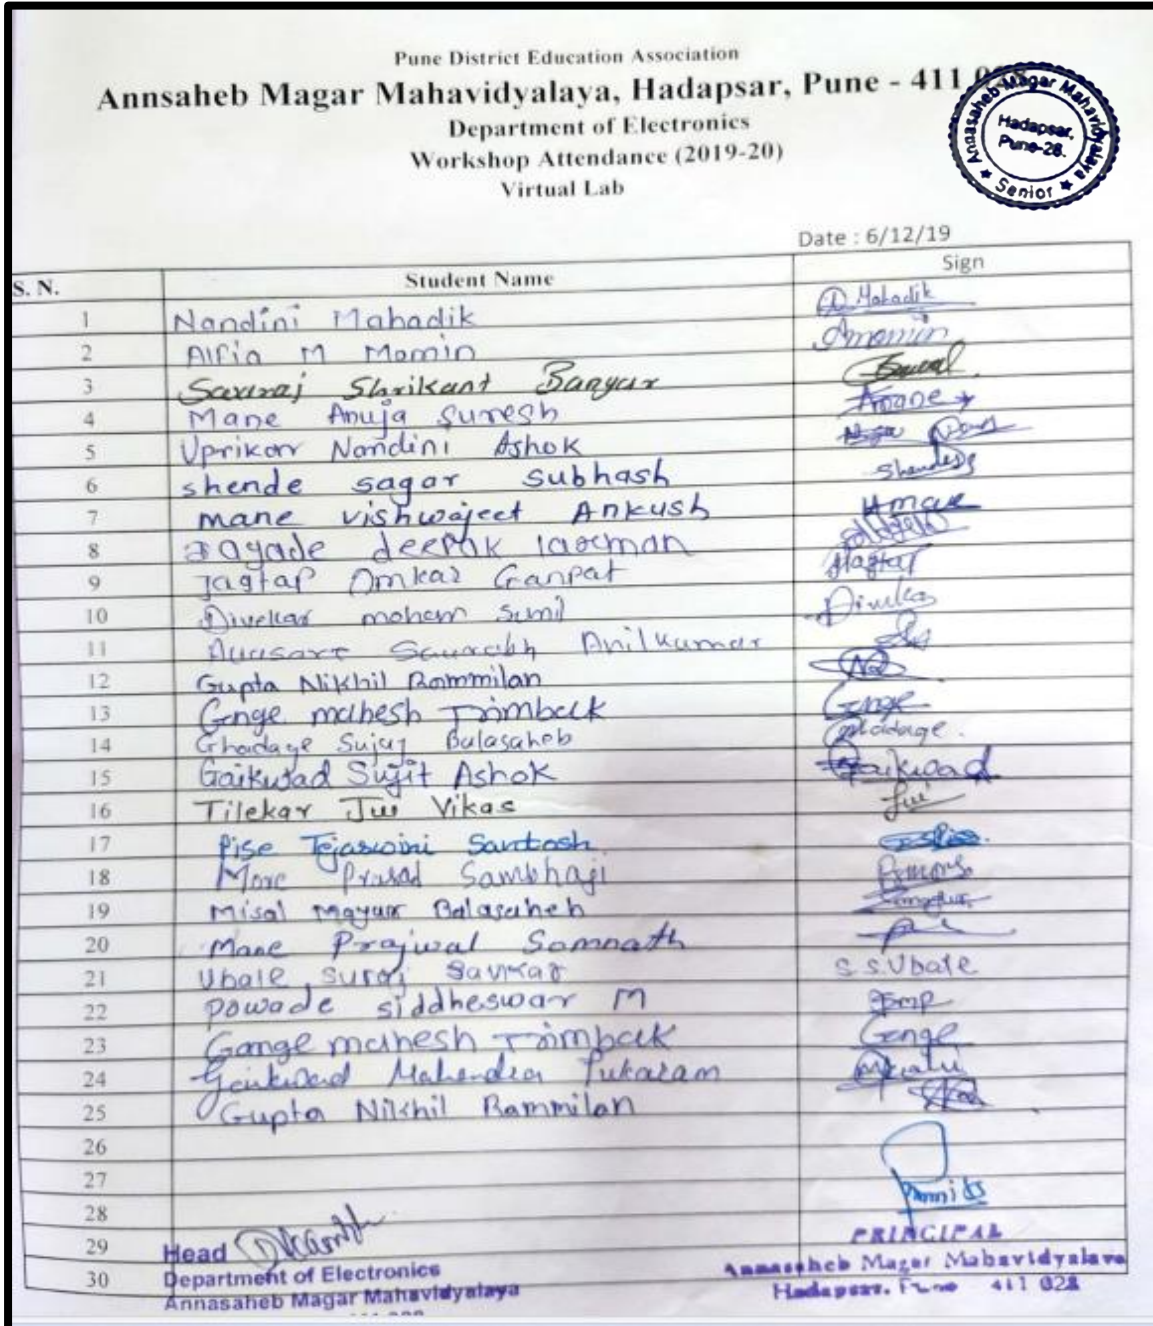 Pune District Education Association
Annsaheb Magar Mahavidyalaya, Hadapsar, Pune - 411 028
Annasaheb Magar Mahavidyalaya
Hadapsar,
Pune-28.
★ Senior ★
Department of Electronics
Workshop Attendance (2019-20)
Virtual Lab
Date : 6/12/19
S. N. Student Name Sign
1 Nandini Mahadik Mahadik
2 Alfia M Momin Amomin
3 Saviraj Shrikant Bangar
4 Mane Anuja Suresh Amane
5 Uprikar Nandini Ashok
6 shende sagar subhash Shendess
7 mane vishwajeet Ankush
8 deepak laxman
9 Jagtap Omkar Ganpat Jagtap
10 Divekar mohan Sunil Divekar
11 Saurabh Anilkumar
12 Gupta Nikhil Rammilan
13 Gange mahesh Trimbak Gange
14 Ghadage Sujay Balasaheb Ghadage.
15 Gaikwad Sujit Ashok Gaikwad
16 Tilekar Jui Vikas Jui
17 Pise Tejaswini Santosh
18 More Prasad Sambhaji
19 Misal Mayur Balasaheb
20 Mane Prajwal Somnath
21 Ubale suraj S.S.Ubale
22 powade siddheswar M
23 Gange mahesh Trimbak Gange
24 Gaikwad Mahendra Tukaram
25 Gupta Nikhil Rammilan
26
27
28
29
30
Head
Department of Electronics
Annasaheb Magar Mahavidyalaya
PRINCIPAL
Annasaheb Magar Mahavidyalaya
Hadapsar, Pune 411 028